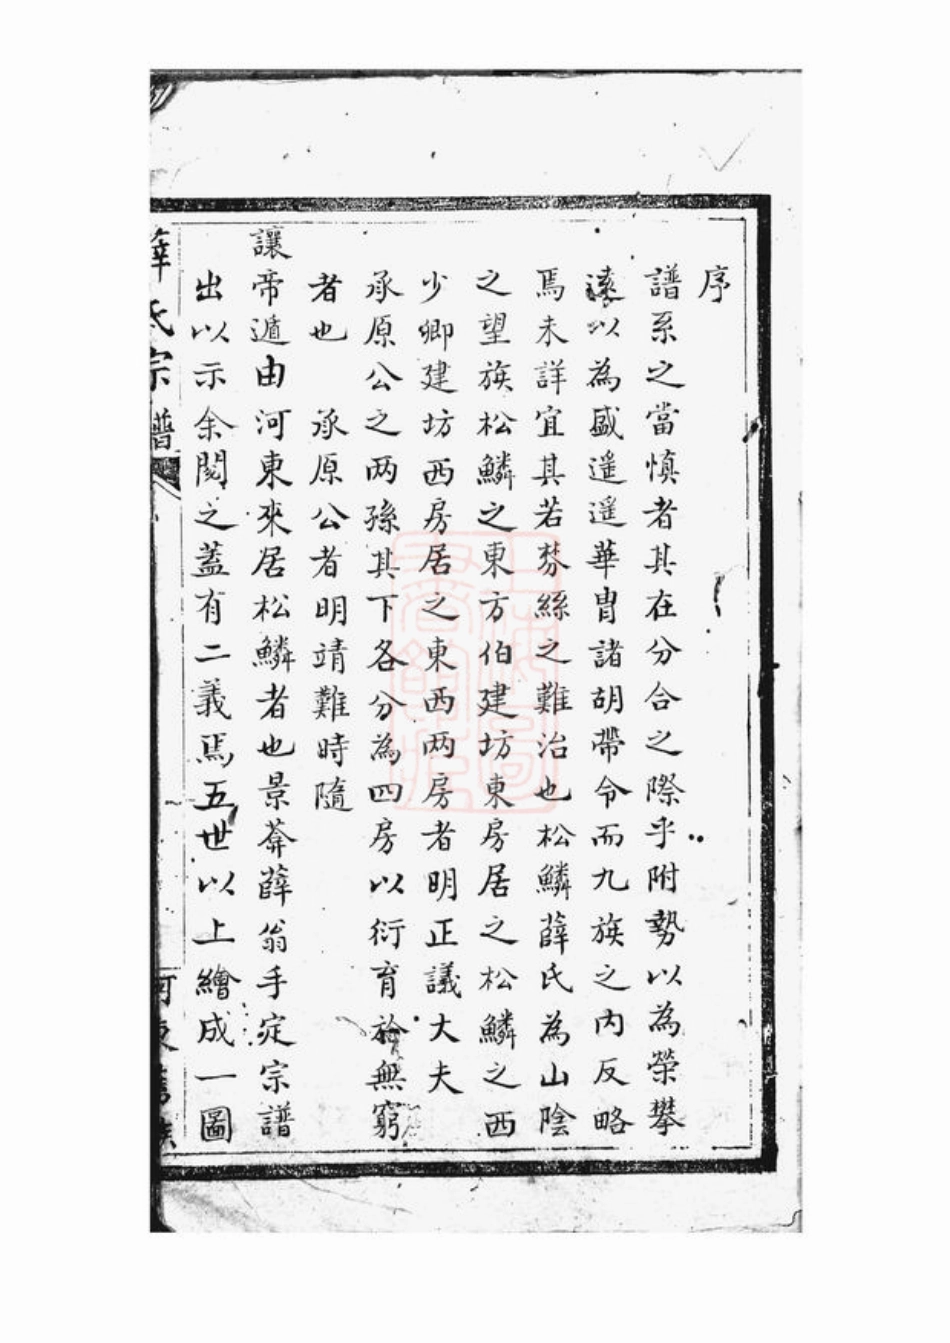 序
譜系之當慎者其在分合之際乎附勢以為榮攀
遠以為盛遥遥華胄諸胡帶令而九族之内反略
焉未詳宜其若棼絲之難治也松鱗薛氏為山陰
之望族松鱗之東方伯建坊東房居之松鱗之西
少卿建坊西房居之東西两房者明正議大夫
承原公之两孫其下各分為四房以衍育於無窮
者也 承原公者明靖難時隨
讓帝遁由河東來居松鱗者也景莾薛翁手定宗譜
出以示余閱之蓋有二義焉五世以上繪成一圖
薛氏宗譜
河東舊族